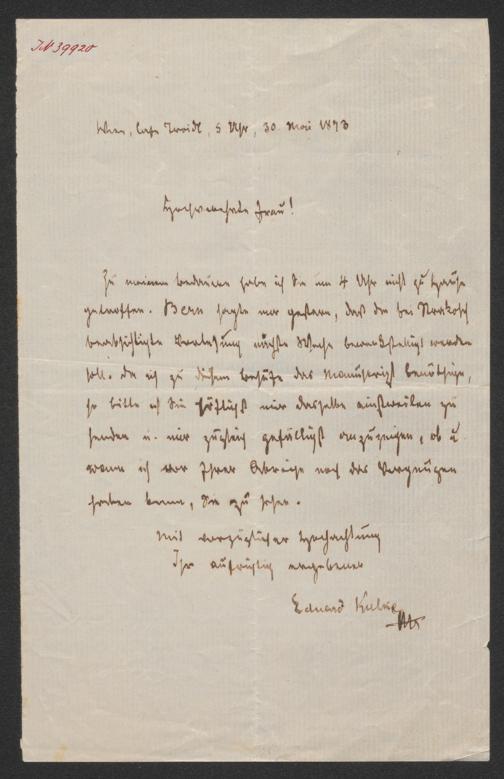 IN 39920
Wien, Cafe Troidl, 5 Uhr, 30. Mai 1873
Hochverehrte Frau!
Zu meinem Bedauern habe ich Sie um 4 Uhr nicht zu Hause
getroffen. Bern sagte mir gestern, daß die bei Strakosch
beabsichtigte Vorlesung nächste Woche bewerkstelligt werden
soll. Da ich zu diesem Behufe das Manuscript benöthige,
so bitte ich Sie höflichst mir dasselbe einstweilen zu
senden u. mir zugleich gefälligst anzuzeigen, ob u.
wann ich vor Ihrer Abreise noch das Vergnügen
haben kann, Sie zu sehen.
Mit vorzüglicher Hochachtung
Ihr aufrichtig ergebener
Eduard Kulke